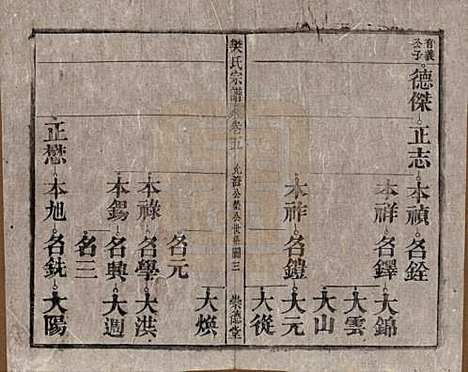 有義公子
德傑 正志 本禎 名銓
本祥 名鐸 大錦
大雲
大山
本祚 名鎧 大元
大從
樊氏宗譜 卷五 世系圖三 崇德堂
名元 大煥
本祿 名學 大洪
本錫 名興 大週
名二
正懋 本旭 名銑 大陽